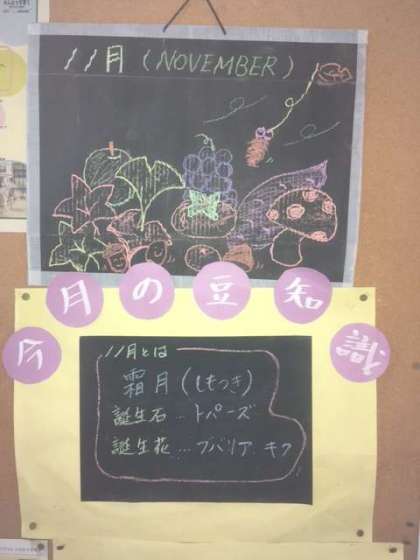 11月 (NOVEMBER)
今月の豆知識
11月とは
霜月 (しもつき)
誕生石…トパーズ
誕生花…ブバリア. キク